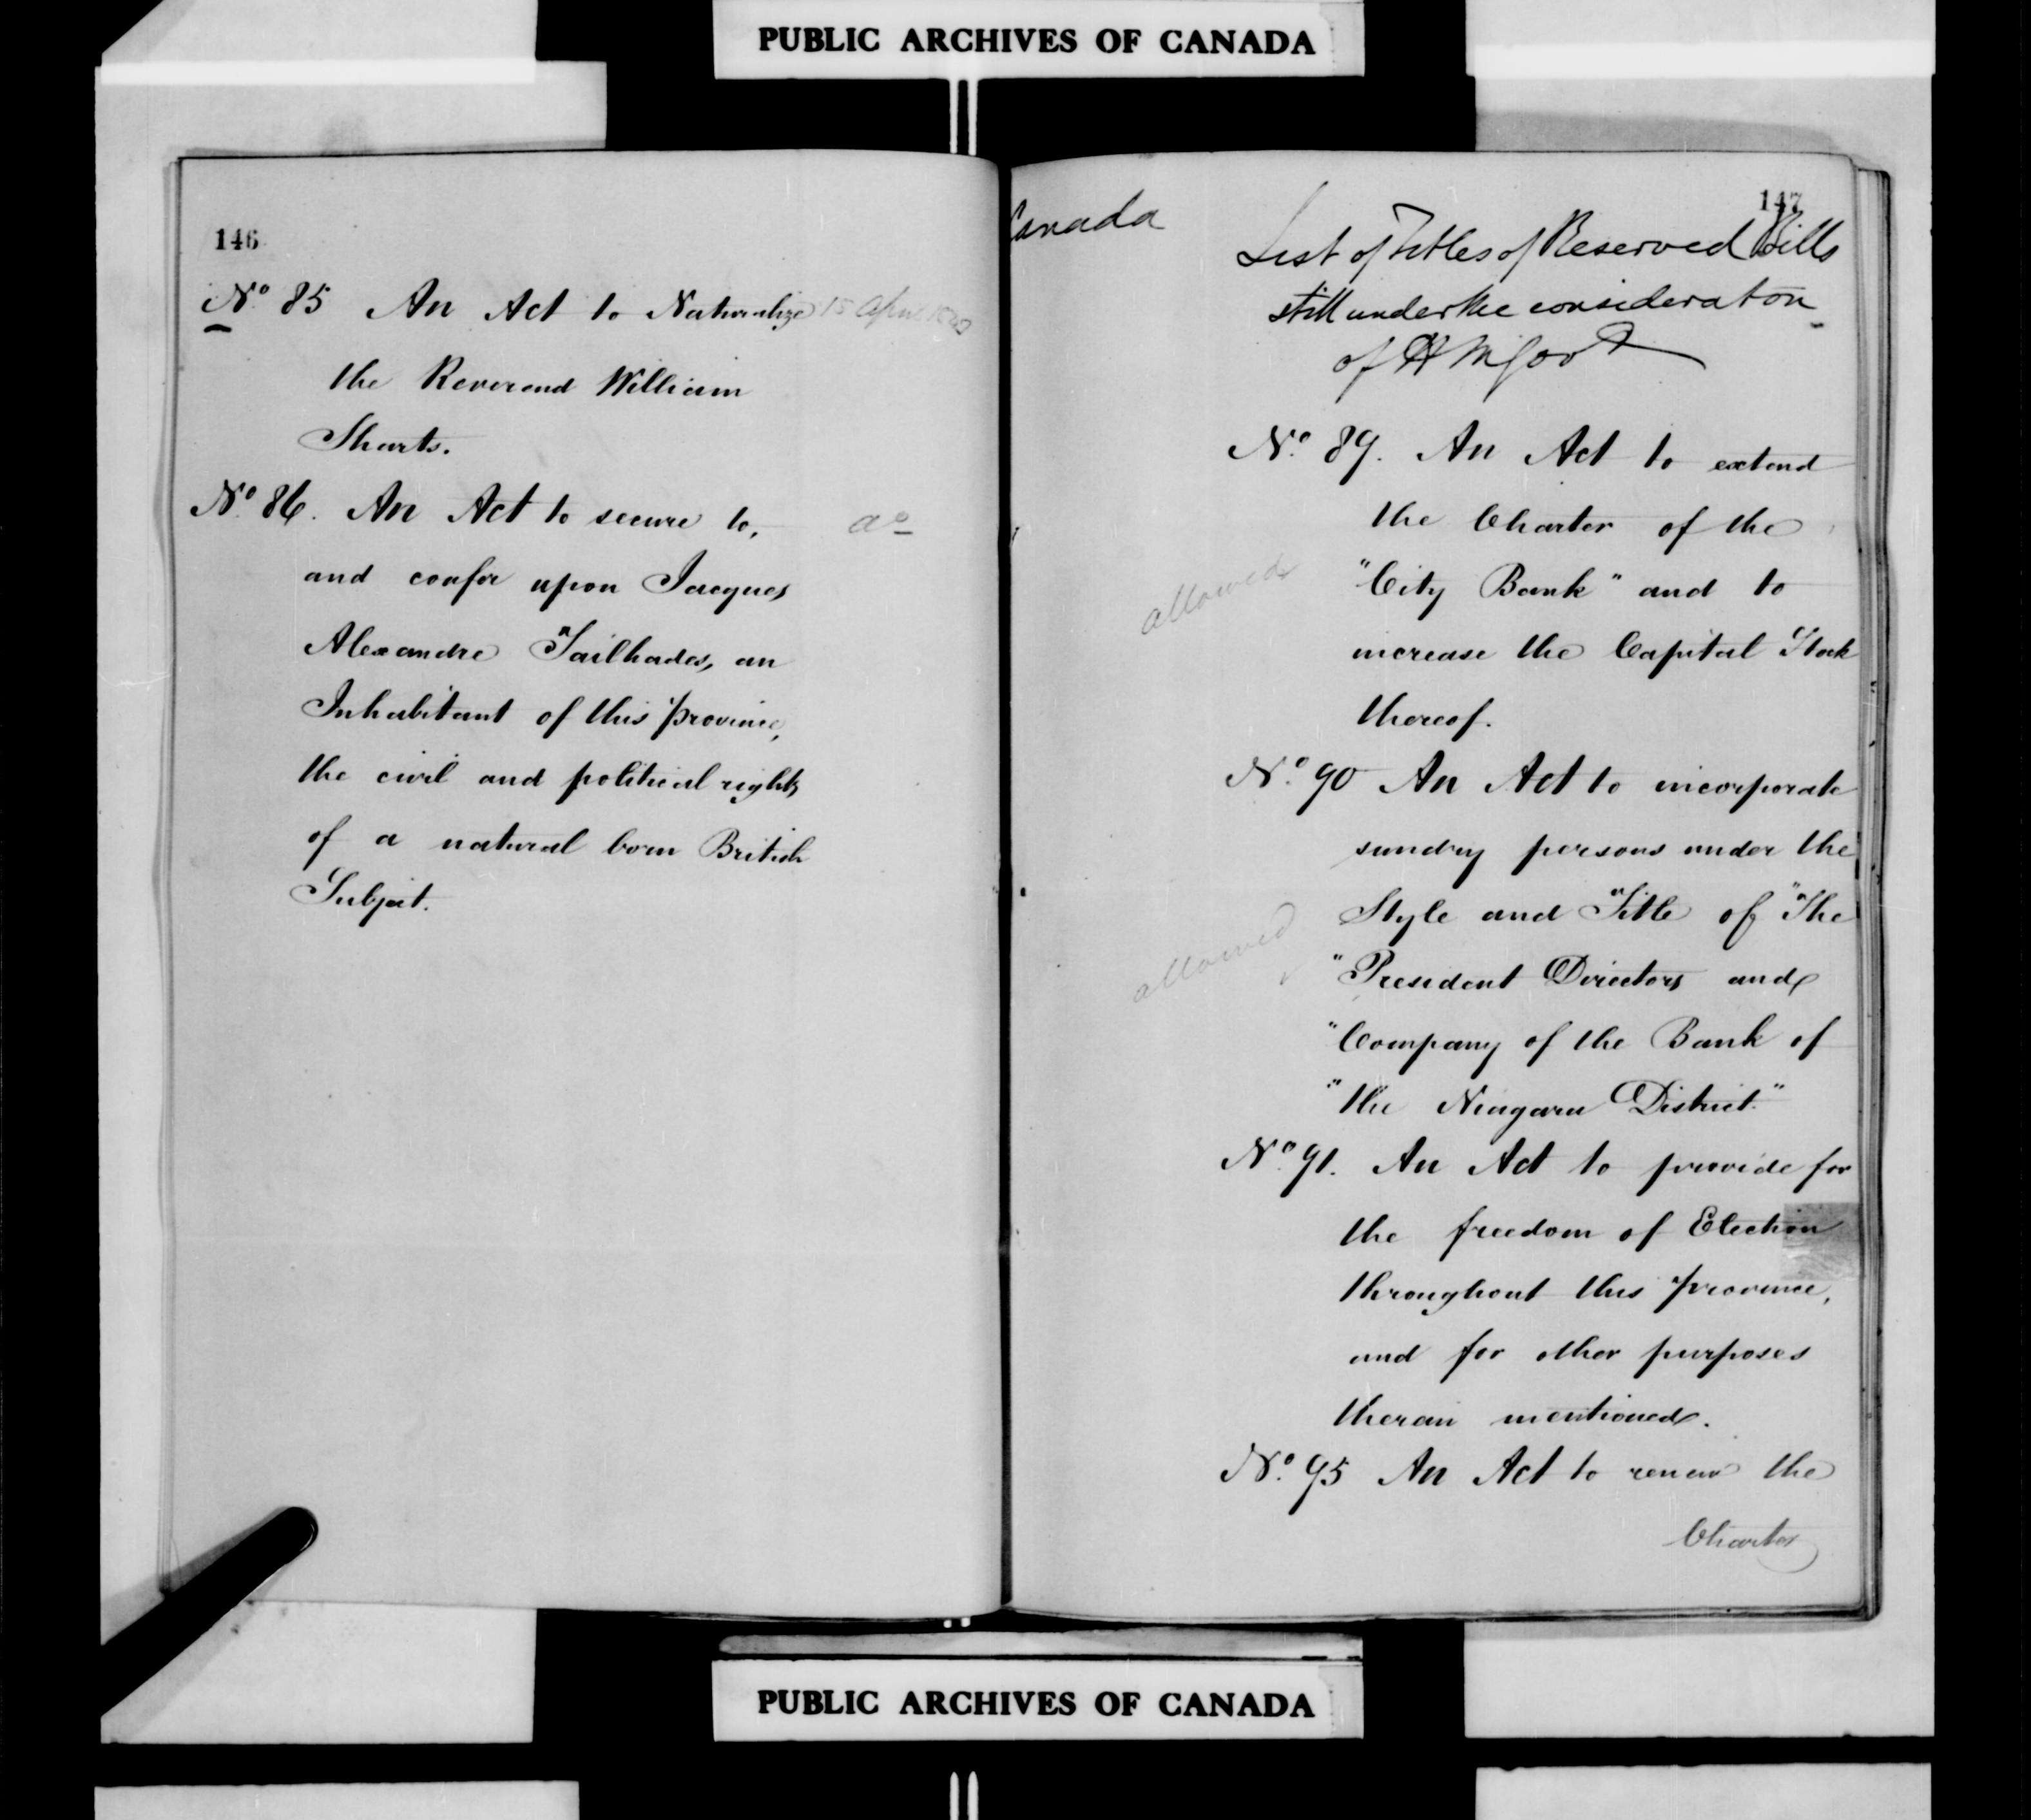 PUBLIC ARCHIVES OF CANADA
146
No 85 An Act to Naturalize 15 Apr
the Reverend William
Sharts.
No 86. An Act to secure to,
do
and confer upon Jacques
Alexandre Tailhades, an
Inhabitant of this Province,
the civil and political rights
of a natural born British
Subject.
147
Canada
List of Titles of Reserved Bills
still under the consideration
of H M Govt
No. 89. An Act to extend
the Charter of the
"City Bank" and to
allowed
increase the Capital Stock
thereof.
No. 90 An Act to incorporate
sundry persons under the
Style and Title of "The
"President Directors and
allowed
"Company of the Bank of
"the Niagara District."
No. 91. An Act to provide for
the freedom of Election
throughout this Province,
and for other purposes
therein mentioned.
No. 95 An Act to renew the
Charter
PUBLIC ARCHIVES OF CANADA